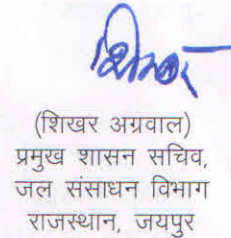 (शिखर अग्रवाल)
प्रमुख शासन सचिव,
जल संसाधन विभाग
राजस्थान, जयपुर